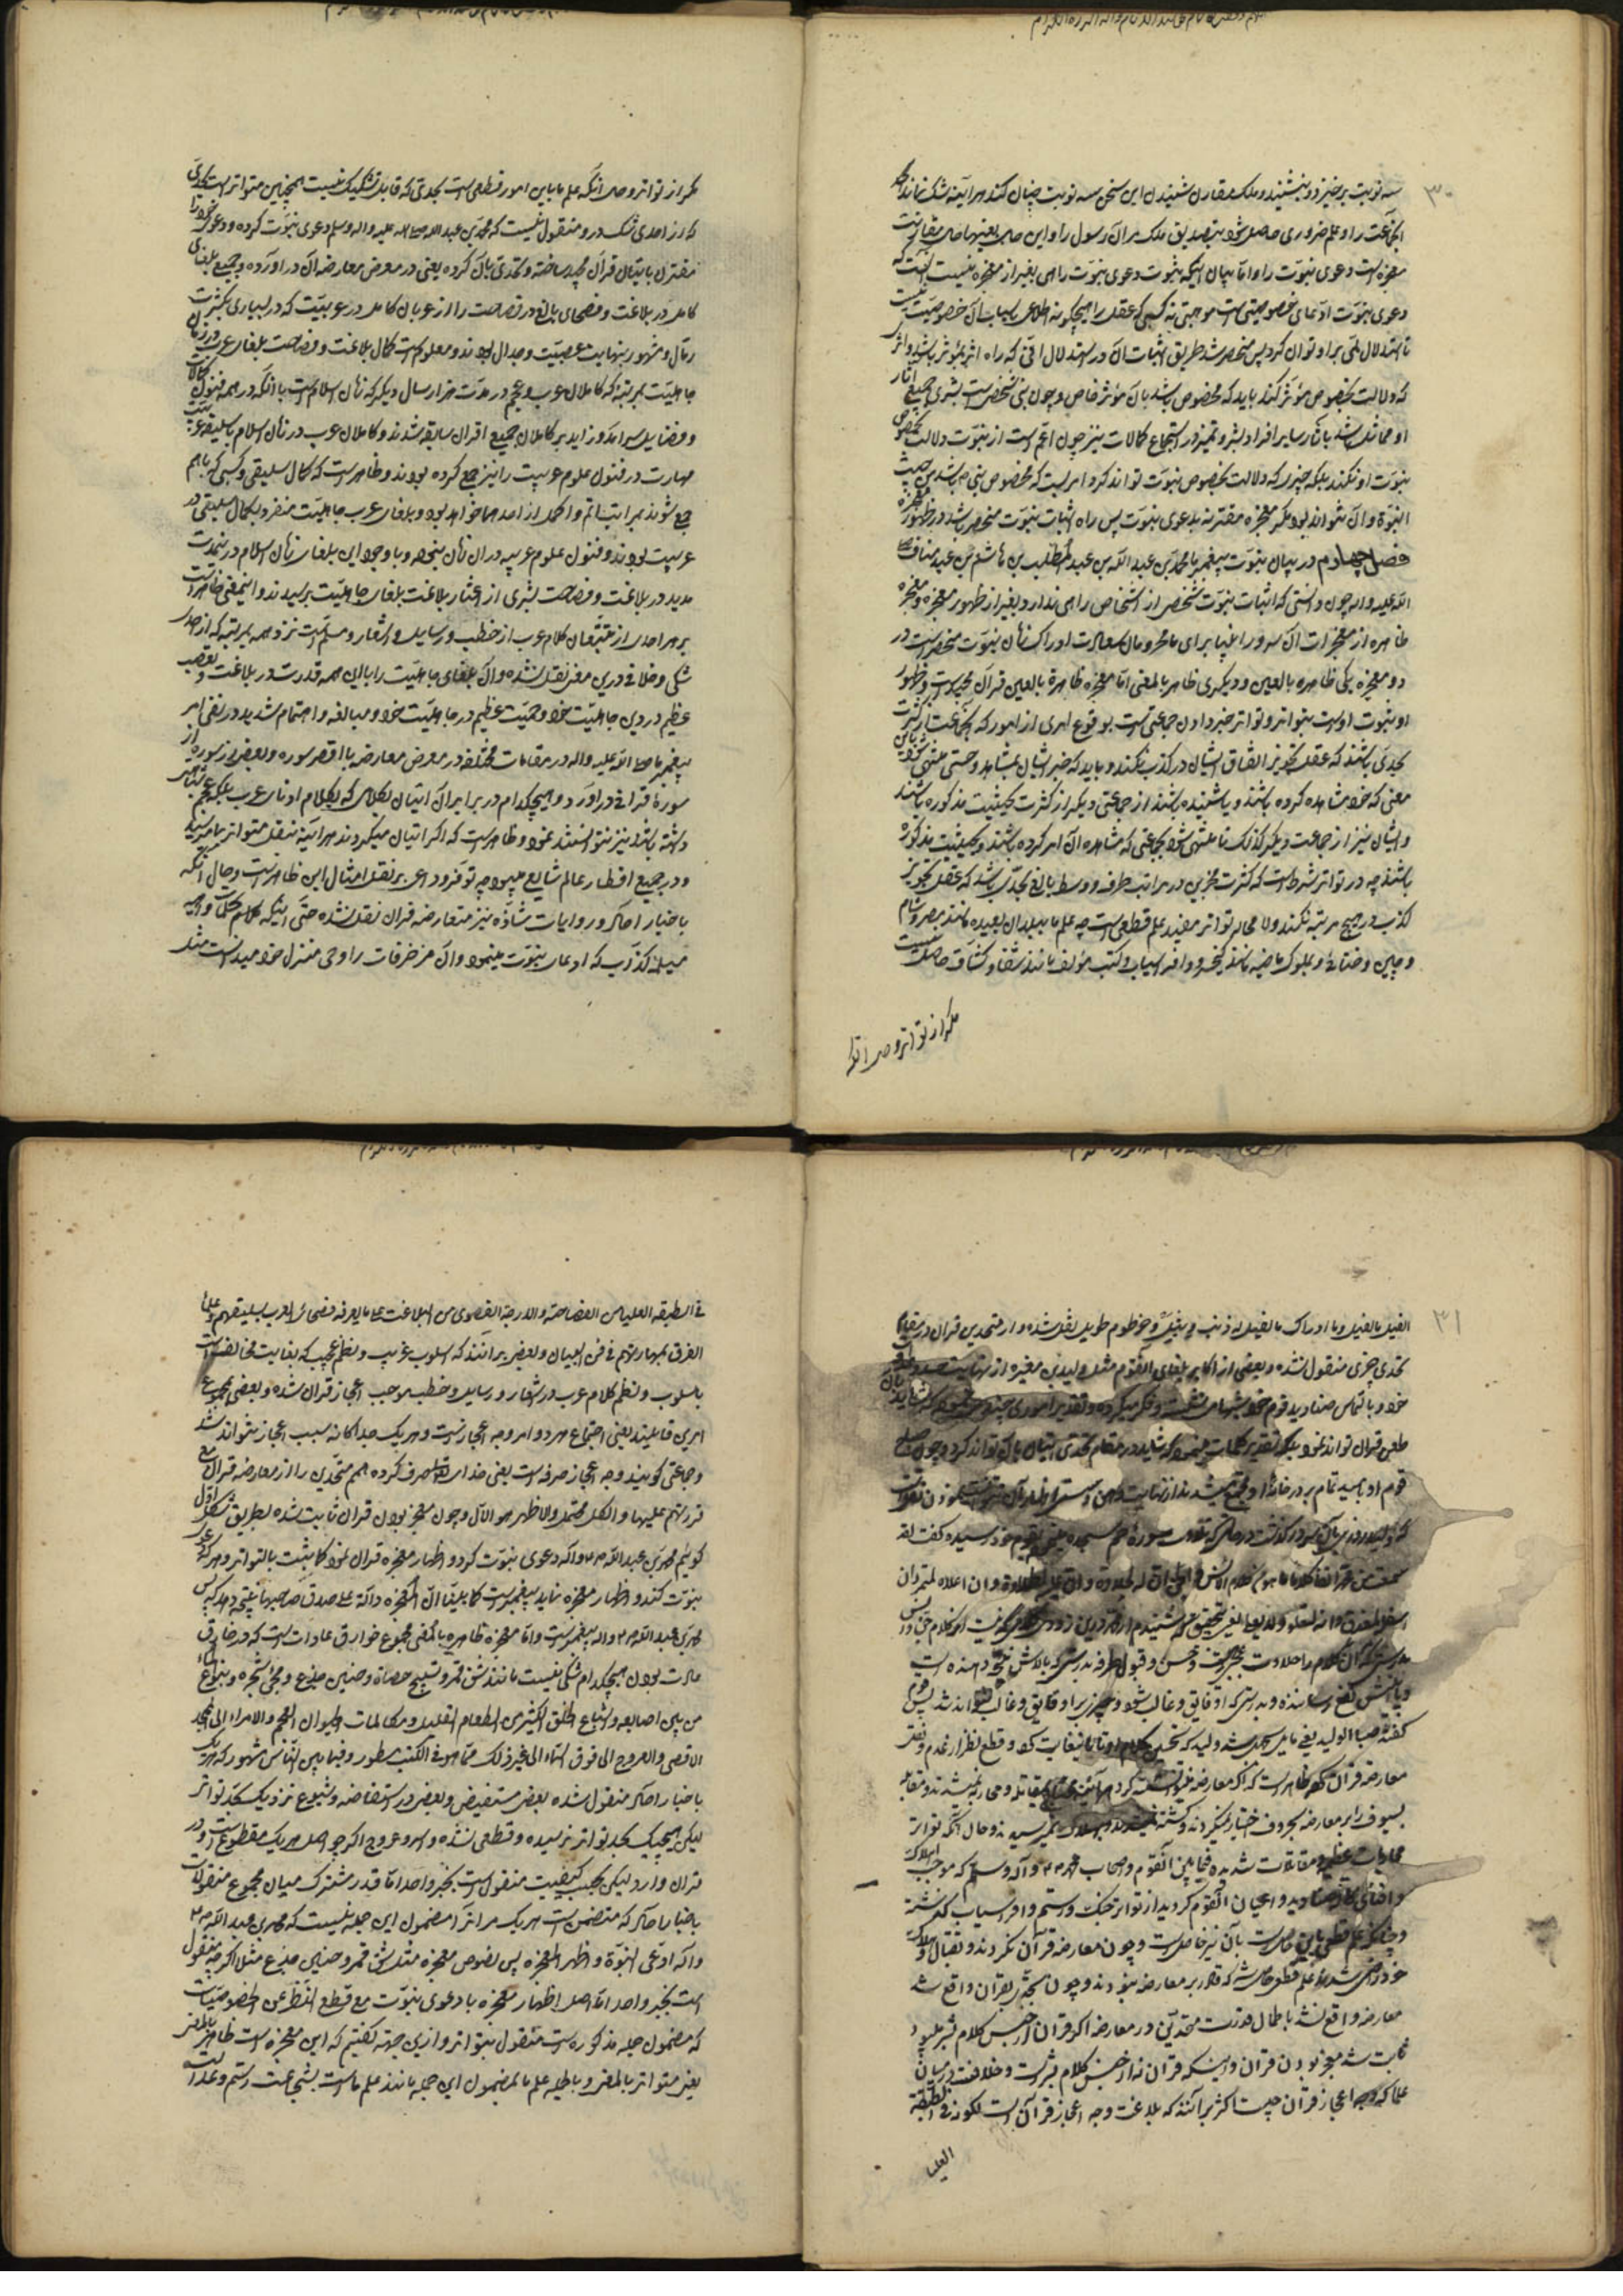 ۳۰
سه نوبت برخیزد و بنشیند و ملک مقارن شنیدن این سخن سه نوبت چنان کند هر آینه شک نماند
آنجماعت را و علم ضروری حاصل شود بتصدیق ملک مر آن رسول را و این حال بعینها حال مقارنت
معجزه است دعوی نبوت را و اما بیان اینکه ثبوت دعوی نبوت را راهی بغیر از معجزه نیست آنست که
دعوی نبوت ادعای خصوصیتی است موهبتی نه کسبی که عقل را هیچگونه اطلاعی باسباب آن خصوصیت نیست
تا استدلال لمّی بر او توان کرد پس منحصر شد طریق اثبات آن در استدلال انّی که راه اثر بمؤثر باشد و اثر
که دلالت بخصوص مؤثر کند باید که مخصوص باشد بآن مؤثر خاص و چون نبی شخصی است بشری جمیع آثار
او مماثل باشد بآثار سایر افراد بشر و تمیز در استجماع کمالات نیز چون اعم است از نبوت دلالت بخصوص
نبوت او نکند بلکه چیزی که دلالت بخصوص نبوت تواند کرد امریست که مخصوص نبی باشد من حیث
النبوة و آن نتواند بود مگر معجزه مقترنه بدعوی نبوت پس راه اثبات نبوت منحصر باشد در ظهور معجزه
فصل چهارم در بیان نبوت پیغمبر ما محمد بن عبد الله بن عبد المطلب بن هاشم بن عبد مناف صلی
الله علیه و اله چون دانستی که اثبات نبوت شخصی از اشخاص راهی ندارد بغیر از ظهور معجزه و معجزه
ظاهره از معجزات آن سرور انبیا برای ما محرومان سعادت ادراک زمان نبوت منحصر است در
دو معجزه یکی ظاهره بالعین و دیگری ظاهر بالمعنی اما معجزه ظاهرة بالعین قرآن مجید است و ظهور
او بنبوت اوست بتواتر و تواتر خبر دادن جماعتی است بوقوع امری از امور که آنجماعت از کثرت
بحدی باشند که عقل تجویز اتفاق ایشان در کذب نکند و باید که خبر ایشان بمشاهده و حسی منتهی گردد
معنی که خود مشاهده کرده باشند و یا شنیده باشند از جماعتی دیگر از کثرت بحیثیت مذکوره باشند
و ایشان نیز از جماعت دیگر کذلک تا منتهی شود بجماعتی که مشاهده آن امر کرده باشند و بحیثیت مذکوره
باشند چه در تواتر شرط است که کثرت مخبرین در مراتب طرف و وسط بالغ بحدی باشد که عقل تجویز
کذب در هیچ مرتبه نکند و لا محاله تواتر مفید علم قطعی است چه علم ما ببلدان بعیده مانند مصر و شام
و چین و ختا و بملوک ماضیه مانند کیخسرو و افراسیاب و کتب مؤلفه مانند شفا و کشاف حاصل نیست
مگر از تواتر و حال آنکه
مگر از تواتر و حال آنکه علم ما باین امور قطعی است بحدی که قابل تشکیک نیست همچنین متواتر است بحدی
که از احدی شک در و منقول نیست که محمد بن عبد الله صلی الله علیه و اله و سلم دعوی نبوت کرده و دعوی خود را
مقترن باتیان قرآن مجید ساخته و تحدی بآن کرده یعنی در معرض معارضه آن در آورده جمیع بلغای
کامل در بلاغت و فصحای بالغ در فصاحت را از عربان کامل در عربیت که در بسیاری بکثرت
رمال و مشهور بنهایت عصبیت و جدال بودند و معلوم است کمال بلاغت و فصاحت بلغای عرب در زمان
جاهلیت بمرتبه که کاملان عرب و عجم در مدت هزار سال دیگر که زمان اسلام است با آنکه در همه فنون کمالات
و فضایل سرآمد و زاید بر کاملان جمیع اقران سابقه شدند و کاملان عرب در زمان اسلام با سلیقه عربیت
مهارت در فنون علوم عربیت را نیز جمع کرده بودند و ظاهر است که کمال سلیقی و کسبی که با هم
جمع شوند بمراتب اتم و اکمل از احدهما خواهد بود و بلغای عرب جاهلیت منفرد بکمال سلیقی در
عربیت بودند و فنون علوم عربیه در آن زمان نبوده و با وجود این بلغای زمان اسلام در مدت
مدید در بلاغت و فصاحت بشری از اعشار بلاغت بلغای جاهلیت نرسیدند و اینمعنی ظاهر است
بر هر احدی از متتبعان کلام عرب از خطب و رسایل و اشعار و مسلم است نزد همه بمرتبه که از احدی
شکی و خلافی درین معنی نقل نشده و آن بلغای جاهلیت را با این همه قدرت در بلاغت و تعصب
عظیم در دین جاهلیت خود و حمیت عظیم در جاهلیت خود و مبالغه و اهتمام شدید در نفی امر
پیغمبر ما صلی الله علیه و اله در مقامات مختلفه در معرض معارضه با اقصر سوره و بعضی از سوره از
سوره قرآنی در آورد و هیچکدام در برابر آن اتیان بکلامی که بکلام ادنای عرب بلکه عجم
داشته باشد نیز نتوانستند نمود و ظاهر است که اگر اتیان میکردند هر آینه بنقل متواتر بما میرسید
و در جمیع اقطار عالم شایع میبود چه توفر دواعی بر نقل امثال این ظاهر است و حال آنکه
باخبار آحاد و روایات شاذه نیز متعارضه قرآن نقل نشده حتی اینکه کلام و کلمات واهیه
مسیلمه کذاب که ادعای نبوت مینمود و آن مزخرفات را وحی منزل خود میدانست مثل
۳۱
الفیل ما الفیل و ما ادراک ما الفیل له ذنب وبیل و خرطوم طویل نقل شده و از متحدین قرآن در مقام
تحدی چیزی منقول نشده و بعضی از اکابر بلغای آنقوم مثل ولید بن مغیره از نهایت
خود و بالتماس صنادید قوم خود شبها می نشست و فکر میکرد و تقدیر اموری چند که شاید
طعن قرآن تواند نمود بلکه تقدیر کلمات مینمود که شاید در مقام تحدی اتیان بآن تواند کرد و چون صبح
قوم او بامید تمام بر در خانه او جمع میشدند از نهایت
که ولید روزی بآن سرور گذشت در حالی که تلاوت سوره حم سجده بقوم خود رسیده گفت لقد
سمعت من محمد آنفا کلاما ما هو من کلام الانس و الجن ان له لحلاوة و ان علیه لطلاوة و ان اعلاه لمثمر و ان
اسفله لمغدق و انه لیعلو و لا یعلی یعنی بتحقیق که شنیدم از محمد درین زودی کلامی که نیست از کلام جن و انس
بدرستی که آن کلام را حلاوت و حسن و قبول بدرستی که بالایش میوه دهنده است
و پائینش نفع رساننده و بدرستی که او فایق و غالب شود و چیزی بر او فایق و غالب نتواند شد پس قوم
گفتند صبا الولید یعنی مایل بمحمد شد ولید که تحسین کلام او تا باینغایت کرد و قطع نظر از عدم نقل
معارضه قرآن کرده ظاهر است که اگر معارضه توانستند کرد هر آینه بمقاتله و محاربه نمیشدند و مقابله
بسیوف را بر معارضه بحروف اختیار نمیکردند و کشته و هلاک نمیرسیدند و حال آنکه تواتر
محاربات عظیمه و مقاتلات شدیده فیما بین آنقوم و اصحاب محمد صلی الله علیه و آله و سلم که موجب هلاکت
و افنای صنادید و اعیان آنقوم گردید از تواتر جنگ رستم و افراسیاب کم نیست
و چنانکه علم قطعی باین حاصل است بآن نیز حاصل است و چون معارضه قرآن نکردند و بقتال و هلاکت
خود راضی شدند علم قطعی حاصل شد که قادر بر معارضه نبودند و چون تحدی بقرآن واقع شد
معارضه واقع نشد با کمال قدرت متحدین در معارضه اگر قرآن از جنس کلام بشر میبود
ثابت شد معجز بودن قرآن و اینکه قرآن نه از جنس کلام بشر است و خلافست در میان
علما که وجه اعجاز قرآن چیست اکثر برآنند که بلاغت وجه اعجاز قرآن است لکونه فی الطبقة
العلیا
فی الطبقه العلیا من الفصاحة و الدرجة القصوی من البلاغت علی ما یعرفه فصحاء العرب بسلیقتهم و علماء
الفرق بمهارتهم فی فن البیان و بعضی برآنند که اسلوب غریب و نظم عجیب که بغایت مخالف است
باسلوب و نظم کلام عرب در اشعار و رسایل و خطب موجب اعجاز قرآن شده و بعضی بمجموع
امرین قایلند یعنی اجتماع هر دو امر وجه اعجاز است و هر یک جداگانه سبب اعجاز نتواند شد
و جماعتی گویند وجه اعجاز صرفه است یعنی خدای تعالی صرف کرده همم متحدین را از معارضه قرآن مع
قدرتهم علیها و الکل محتمل و الاظهر هو الاول و چون معجز بودن قرآن ثابت شده بطریق شکل اول
گوئیم محمد بن عبد الله ص و اله دعوی نبوت کرد و اظهار معجزه قرآن نمود کما ثبت بالتواتر و هر که دعوی
نبوت کند و اظهار معجزه نماید پیغمبر است کما بیّنا انّ المعجزه دالة علی صدق صاحبها نتیجه دهد که پس
محمد بن عبد الله ص و اله پیغمبر است و اما معجزه ظاهره بالمعنی مجموع خوارق عادات است که در خارق
عادت بودن هیچکدام شکی نیست مانند شق قمر و تسبیح حصاة و حنین جذع و مجیء شجره و نبوع الماء
من بین اصابعه و اشباع الخلق الکثیر من الطعام القلیل و مکالمات الحیوان العجم و الاسراء الی المسجد
الاقصی و العروج الی فوق السماء الی غیر ذلک مما هو فی الکتب مسطور و فیما بین الناس مشهور که هر یک
باخبار آحاد منقول شده بعضی مستفیض و بعضی در استفاضه و شیوع نزدیک بحد تواتر
لیکن هیچیک بحد تواتر نرسیده و قطعی نشده و اسرا و عروج اگر چه اصل هر یک مقطوع است و در
قرآن وارد لیکن بحسب کیفیت منقول است بخبر واحد اما قدر مشترک میان مجموع منقولات
باخبار آحاد که متضمن است هر یک مر آنرا مضمون این جمله نیست که محمد بن عبد الله ص
و اله ادعی النبوة و اظهر المعجزه پس بخصوص معجزه مثل شق قمر و حنین جذع مثلا اگر چه منقول
است بخبر واحد اما اصل اظهار معجزه با دعوی نبوت مع قطع النظر عن الخصوصیات
که مضمون جمله مذکوره است منقول بتواتر و ازین جهة گفتیم که این معجزه است ظاهر بالمعنی
یعنی متواتر بالمعنی و بالجمله علم ما بمضمون این جمله مانند علم ماست بشجاعت رستم و عدالت